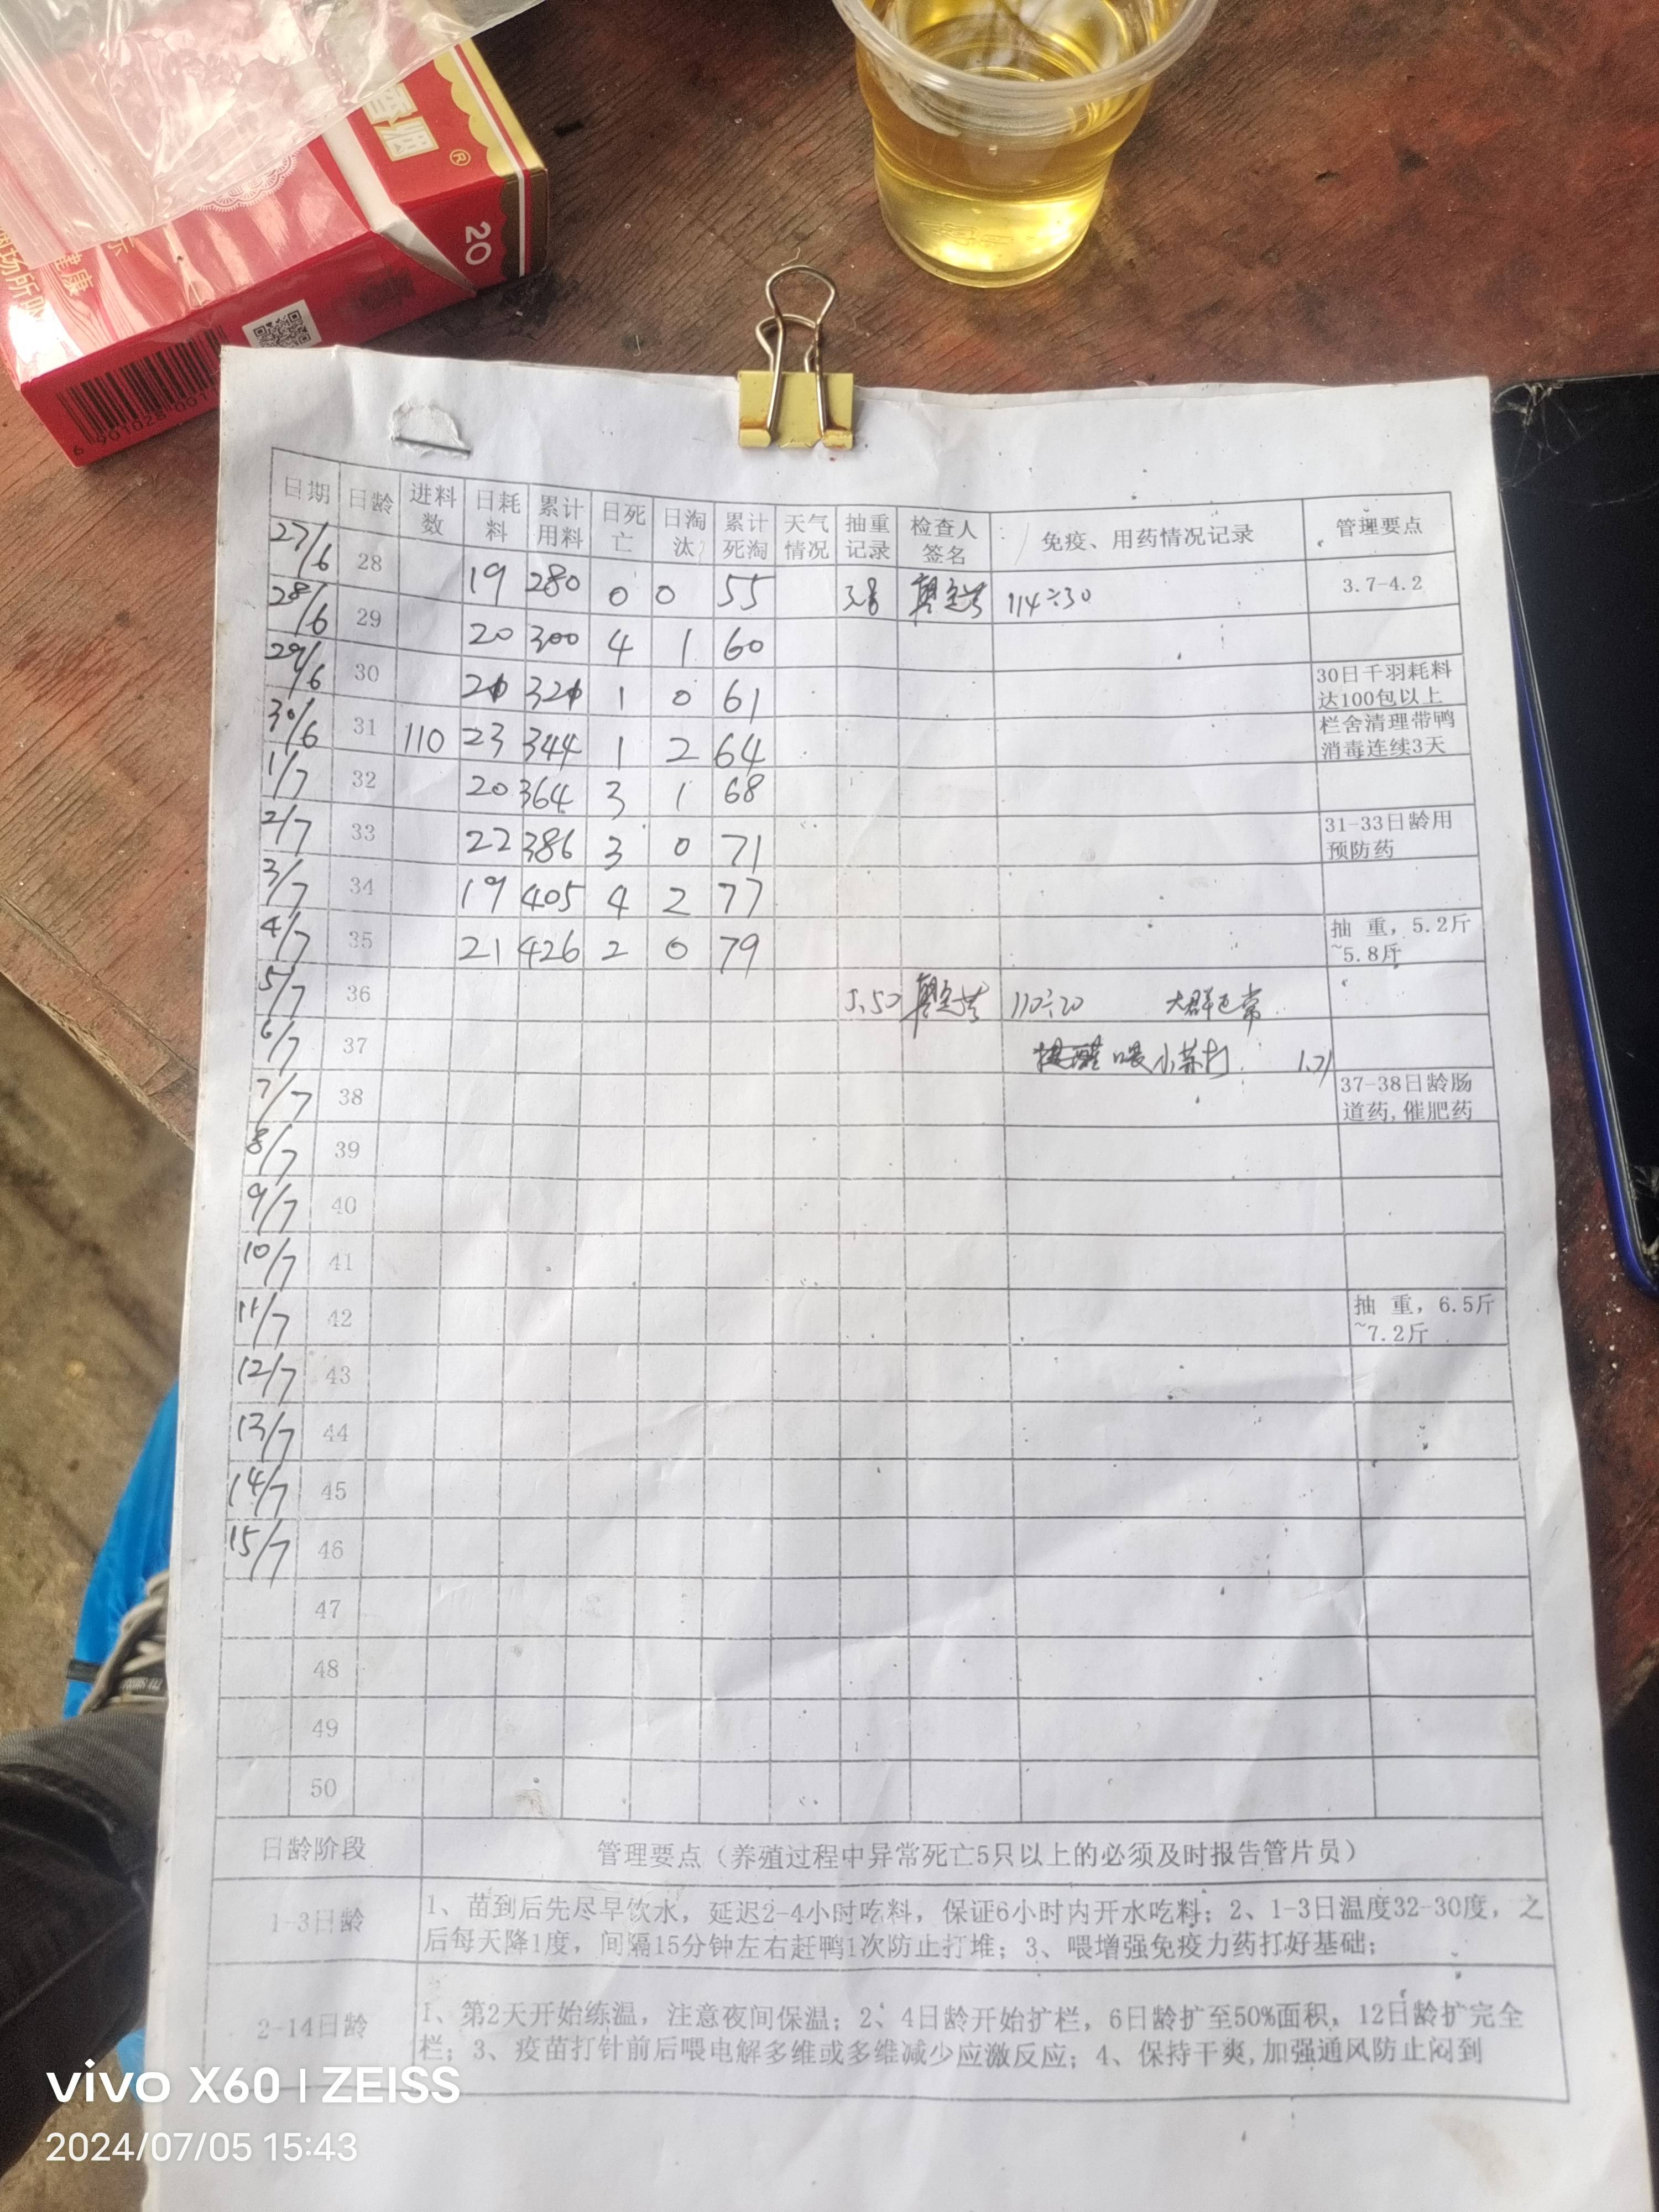 香烟®
20
健康
日期 日龄 进料数 日耗料 累计用料 日死亡 日淘汰 累计死淘 天气情况 抽重记录 检查人签名 免疫、用药情况记录 管理要点
27/6 28 19 280 0 0 55 3.8 114÷30 3.7-4.2
28/6 29 20 300 4 1 60
29/6 30 21 321 1 0 61 30日千羽耗料达100包以上
30/6 31 110 23 344 1 2 64 栏舍清理带鸭消毒连续3天
1/7 32 20 364 3 1 68
2/7 33 22 386 3 0 71 31-33日龄用预防药
3/7 34 19 405 4 2 77
4/7 35 21 426 2 0 79 抽 重, 5.2斤~5.8斤
5/7 36 5.50 110÷20 大群正常
6/7 37 提醒喂小苏打
7/7 38 37-38日龄肠道药,催肥药
8/7 39
9/7 40
10/7 41
11/7 42 抽 重, 6.5斤~7.2斤
12/7 43
13/7 44
14/7 45
15/7 46
47
48
49
50
日龄阶段 管理要点（养殖过程中异常死亡5只以上的必须及时报告管片员）
1-3日龄 1、苗到后先尽早饮水，延迟2-4小时吃料，保证6小时内开水吃料；2、1-3日温度32-30度，之
后每天降1度，间隔15分钟左右赶鸭1次防止打堆；3、喂增强免疫力药打好基础；
2-14日龄 1、第2天开始练温，注意夜间保温；2、4日龄开始扩栏，6日龄扩至50%面积，12日龄扩完全
栏；3、疫苗打针前后喂电解多维或多维减少应激反应；4、保持干爽,加强通风防止闷到
vivo X60 | ZEISS
2024/07/05 15:43